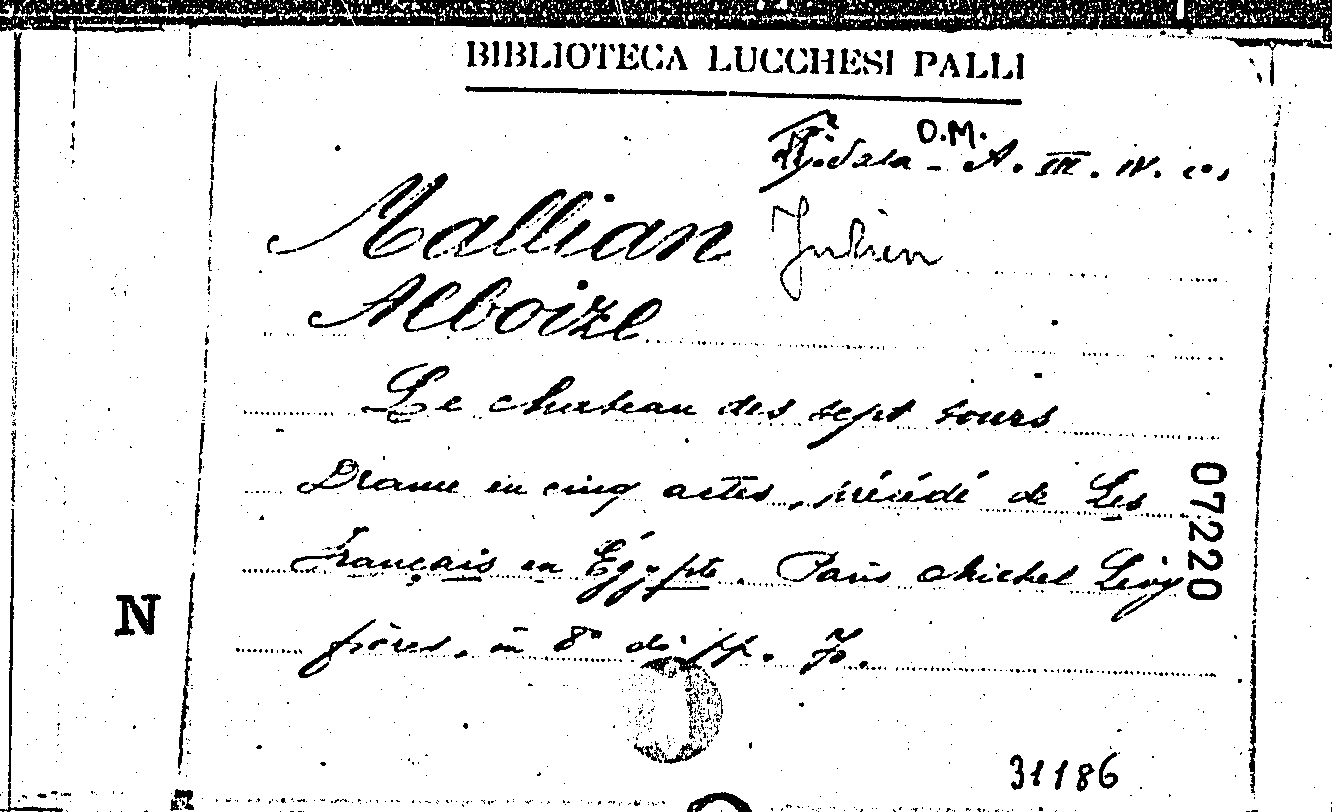 BIBLIOTECA LUCCHESI PALLI
O.M.
Sala - A. III. IV.
Mallian Julien
Alboize
Le chateau des sept tours
Drame en cinq actes, précédé de Les
Français en Égypte. Paris Michel Lévy
frères, in 8° di pp. 70.
07220
N
31186